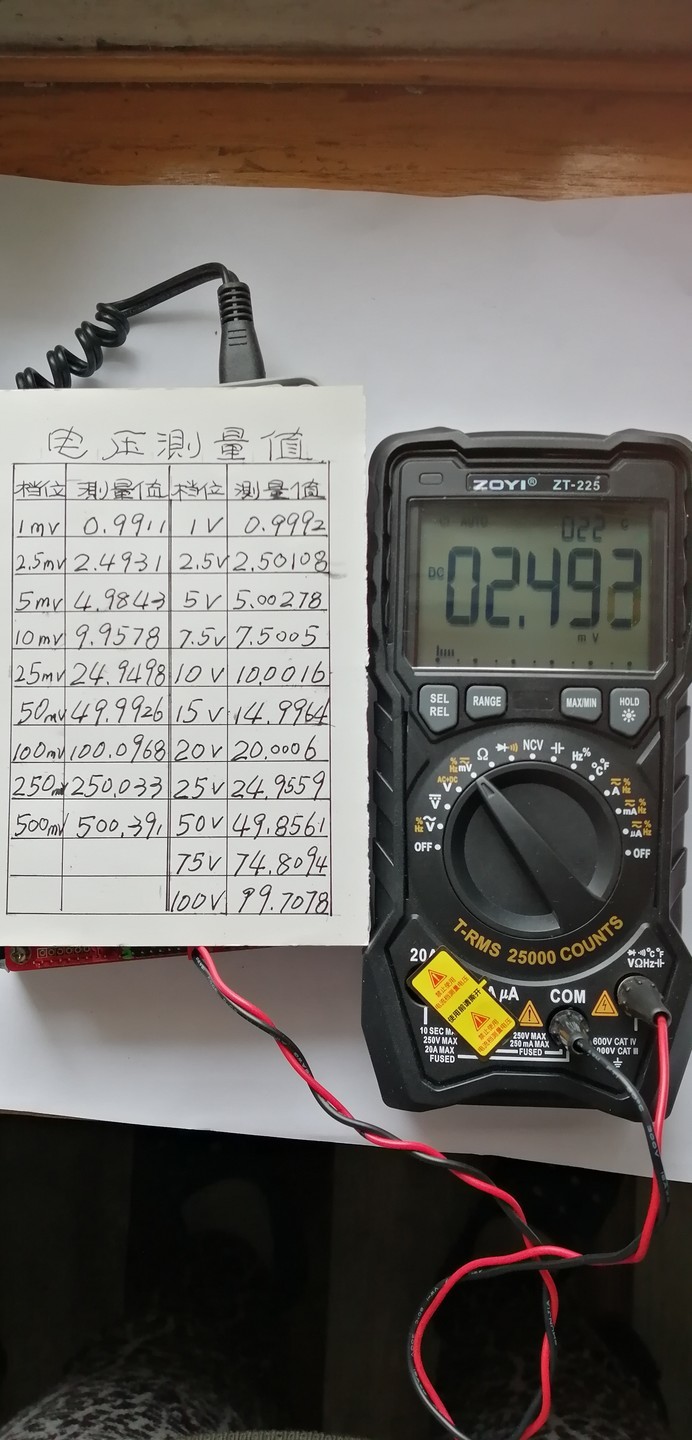 电压測量值
档位 測量值 档位 測量值
1mv 0.9911 1V 0.9992
2.5mv 2.4931 2.5V 2.50108
5mv 4.9843 5V 5.00278
10mv 9.9578 7.5V 7.5005
25mv 24.9498 10V 10.0016
50mv 49.9926 15V 14.9964
100mv 100.0968 20V 20.0006
250mv 250.033 25V 24.9559
500mv 500.391 50V 49.8561
75V 74.8094
100V 99.7078
ZOYI® ZT-225
AUTO 022 C
DC
mV
SEL REL
RANGE
MAX/MIN
HOLD
Hz% mV Ω NCV Hz% °C°F
AC+DC V A Hz%
V mA Hz%
Hz% V μA Hz%
OFF OFF
T-RMS 25000 COUNTS
20A
μA COM VΩHz
禁止使用
电流档测量电压
使用前请撕开
禁止使用
电流档测量电压
10 SEC MAX
250V MAX
20A MAX
FUSED
250V MAX
250 mA MAX
FUSED
600V CAT IV
1000V CAT III